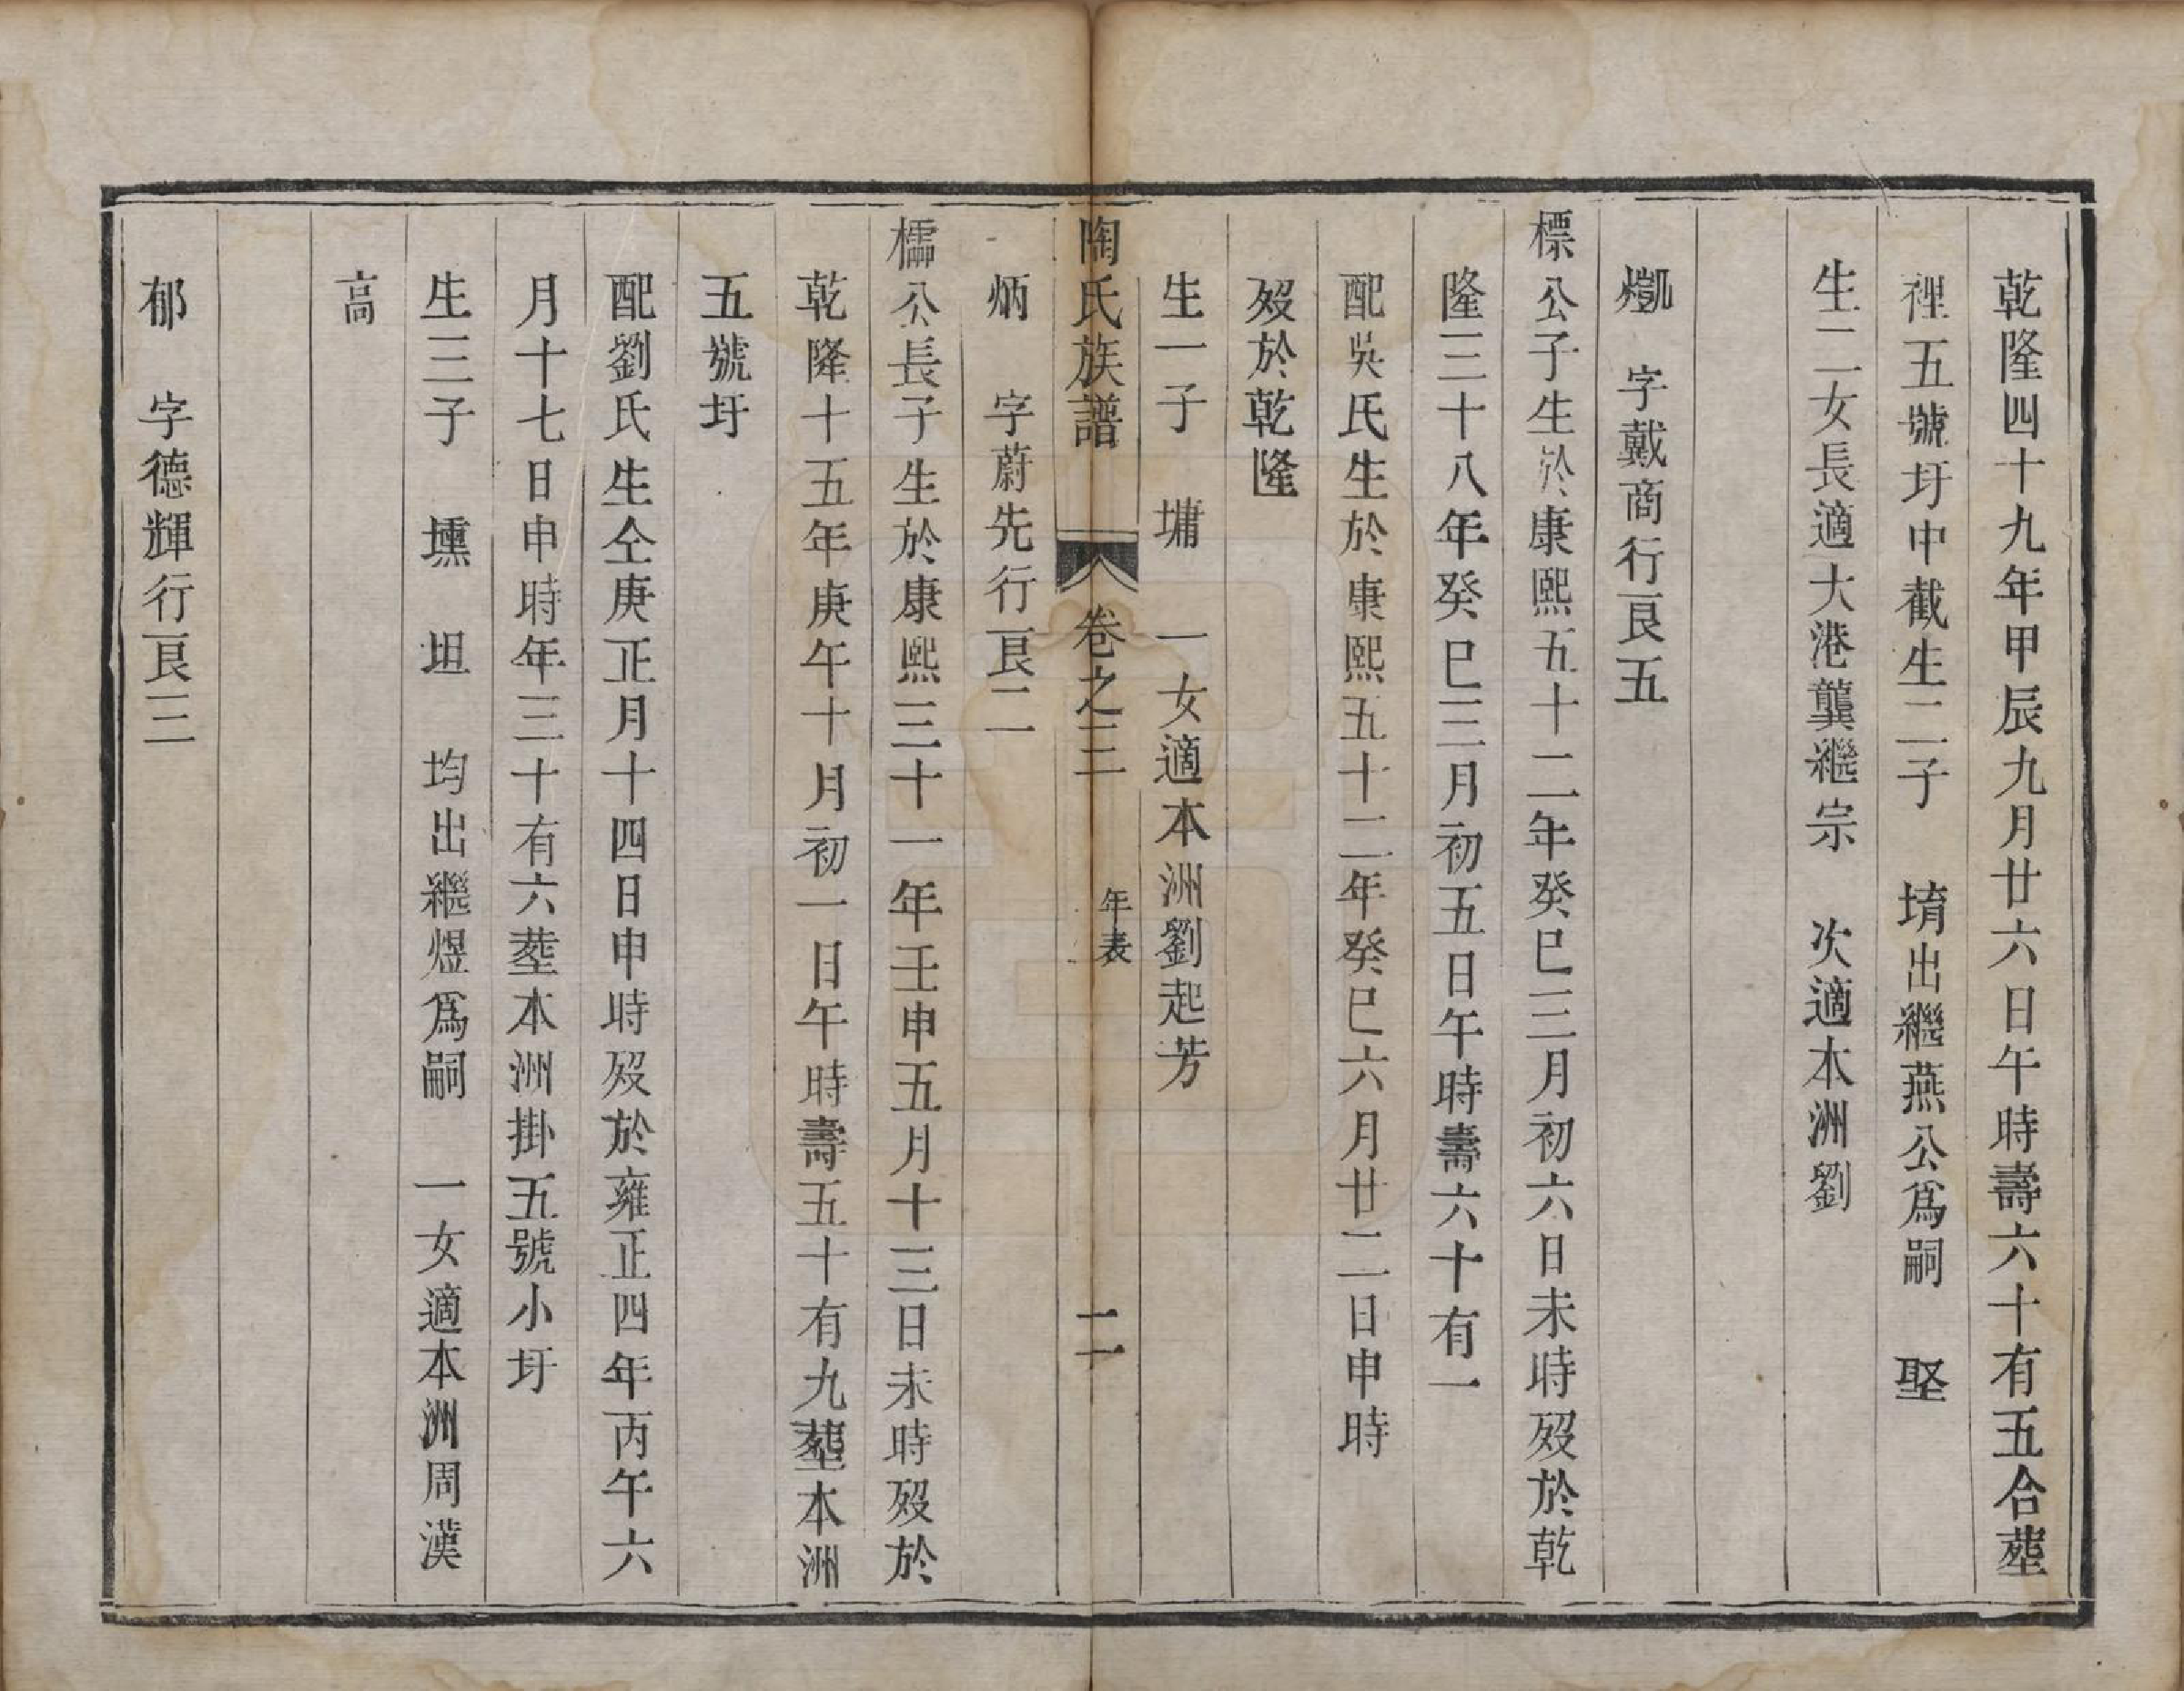 乾隆四十九年甲辰九月廿六日午時壽六十有五合塟
裡五號圩中截生二子　堉出繼燕公爲嗣　堅
生二女長適大港龔繼宗　次適本洲劉
字戴商行艮五
標公子生於康熙五十二年癸巳三月初六日未時歿於乾
隆三十八年癸巳三月初五日午時壽六十有一
配吳氏生於康熙五十二年癸巳六月廿二日申時
歿於乾隆
生一子　墉　一女適本洲劉起芳
陶氏族譜　卷之三　年表　二十
炳　字蔚先行艮二
檽公長子生於康熙三十一年壬申五月十三日未時歿於
乾隆十五年庚午十月初一日午時壽五十有九塟本洲
五號圩
配劉氏生仝庚正月十四日申時歿於雍正四年丙午六
月十七日申時年三十有六塟本洲掛五號小圩
生三子　壎　坦　均出繼煜爲嗣　一女適本洲周漢
高
郁　字德輝行艮三